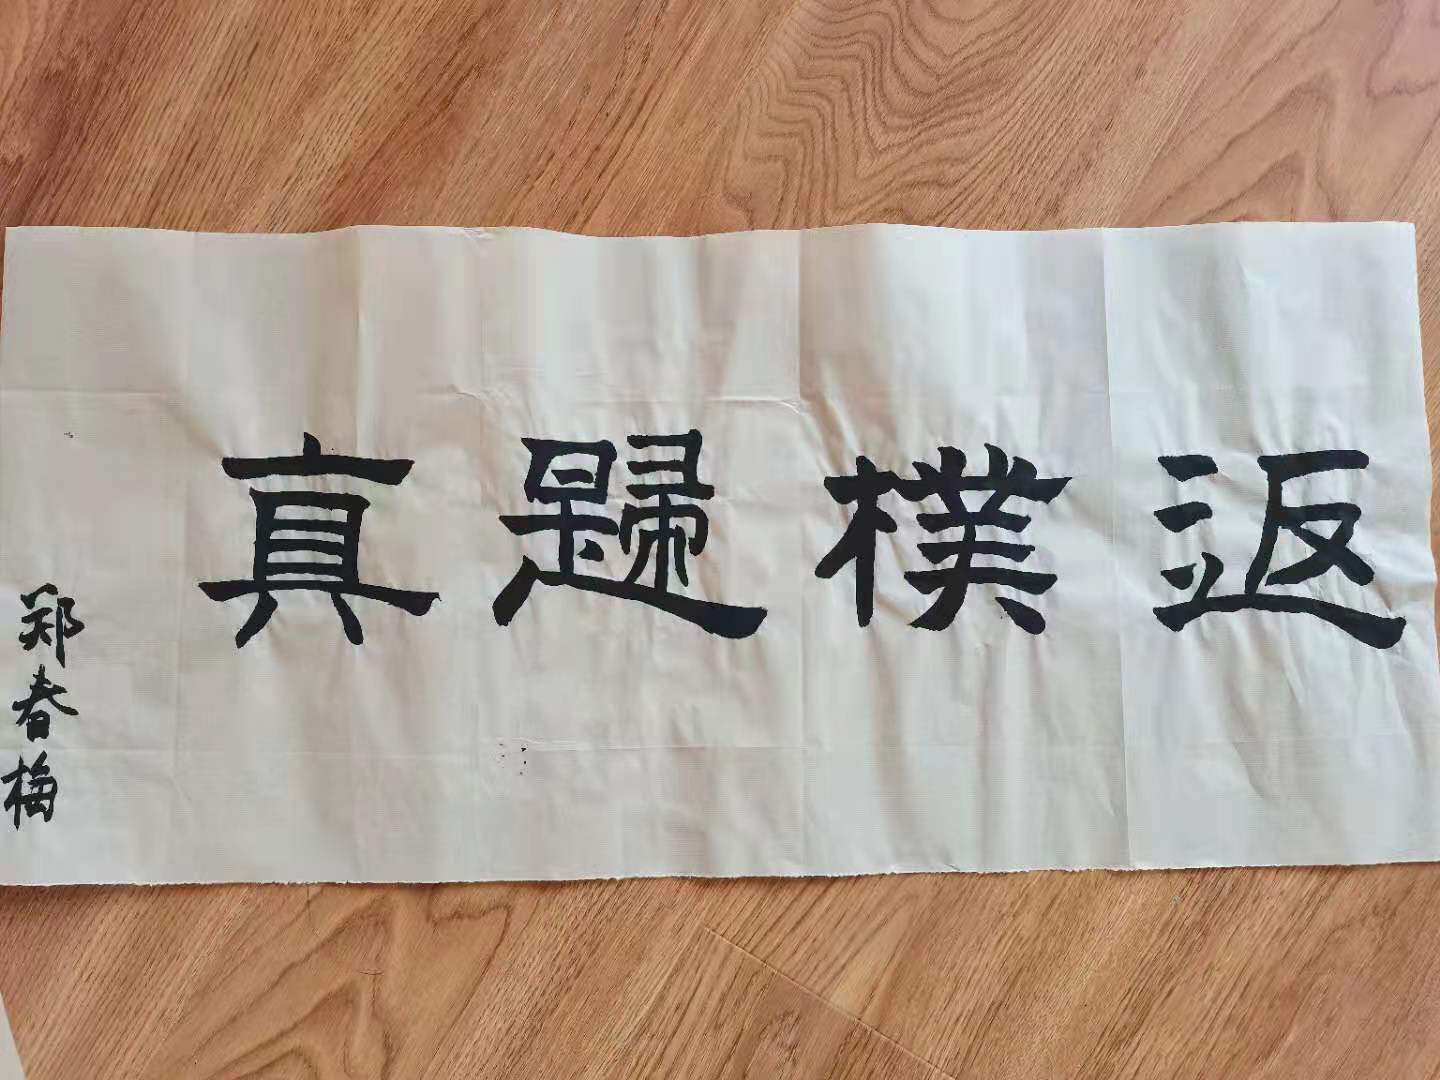 返樸歸真
郑春梅